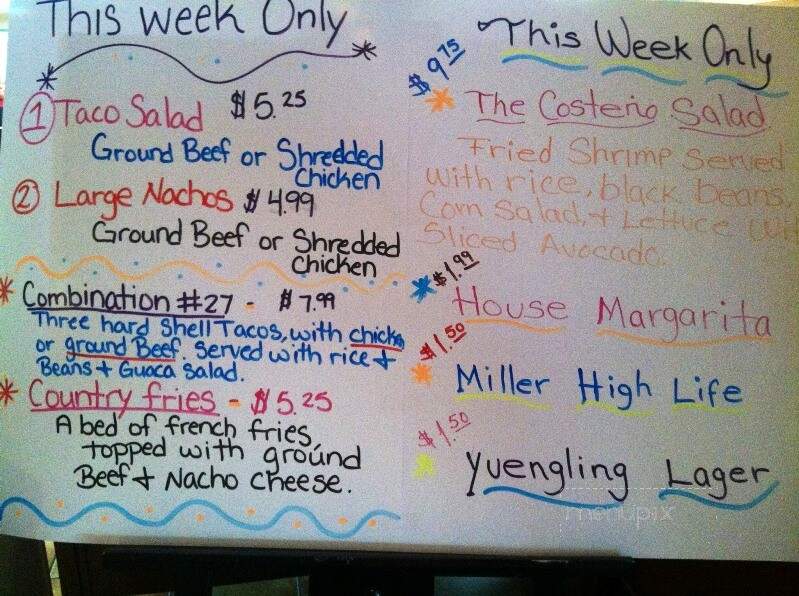 This week Only
① Taco Salad $5.25
Ground Beef or Shredded
Chicken
② Large Nachos $4.99
Ground Beef or Shredded
Chicken
* Combination #27 - $7.99
Three hard shell Tacos, with chicken
or ground Beef. Served with rice +
Beans + Guaca salad.
* Country fries - $5.25
A bed of french fries,
topped with ground
Beef + Nacho cheese.
This Week Only
$9.75
* The Costeño Salad
Fried Shrimp Served
with rice, black beans,
Corn Salad, + Lettuce
Sliced Avocado.
* $1.99
House Margarita
$1.50
* Miller High Life
$1.50
* Yuengling Lager
menupix